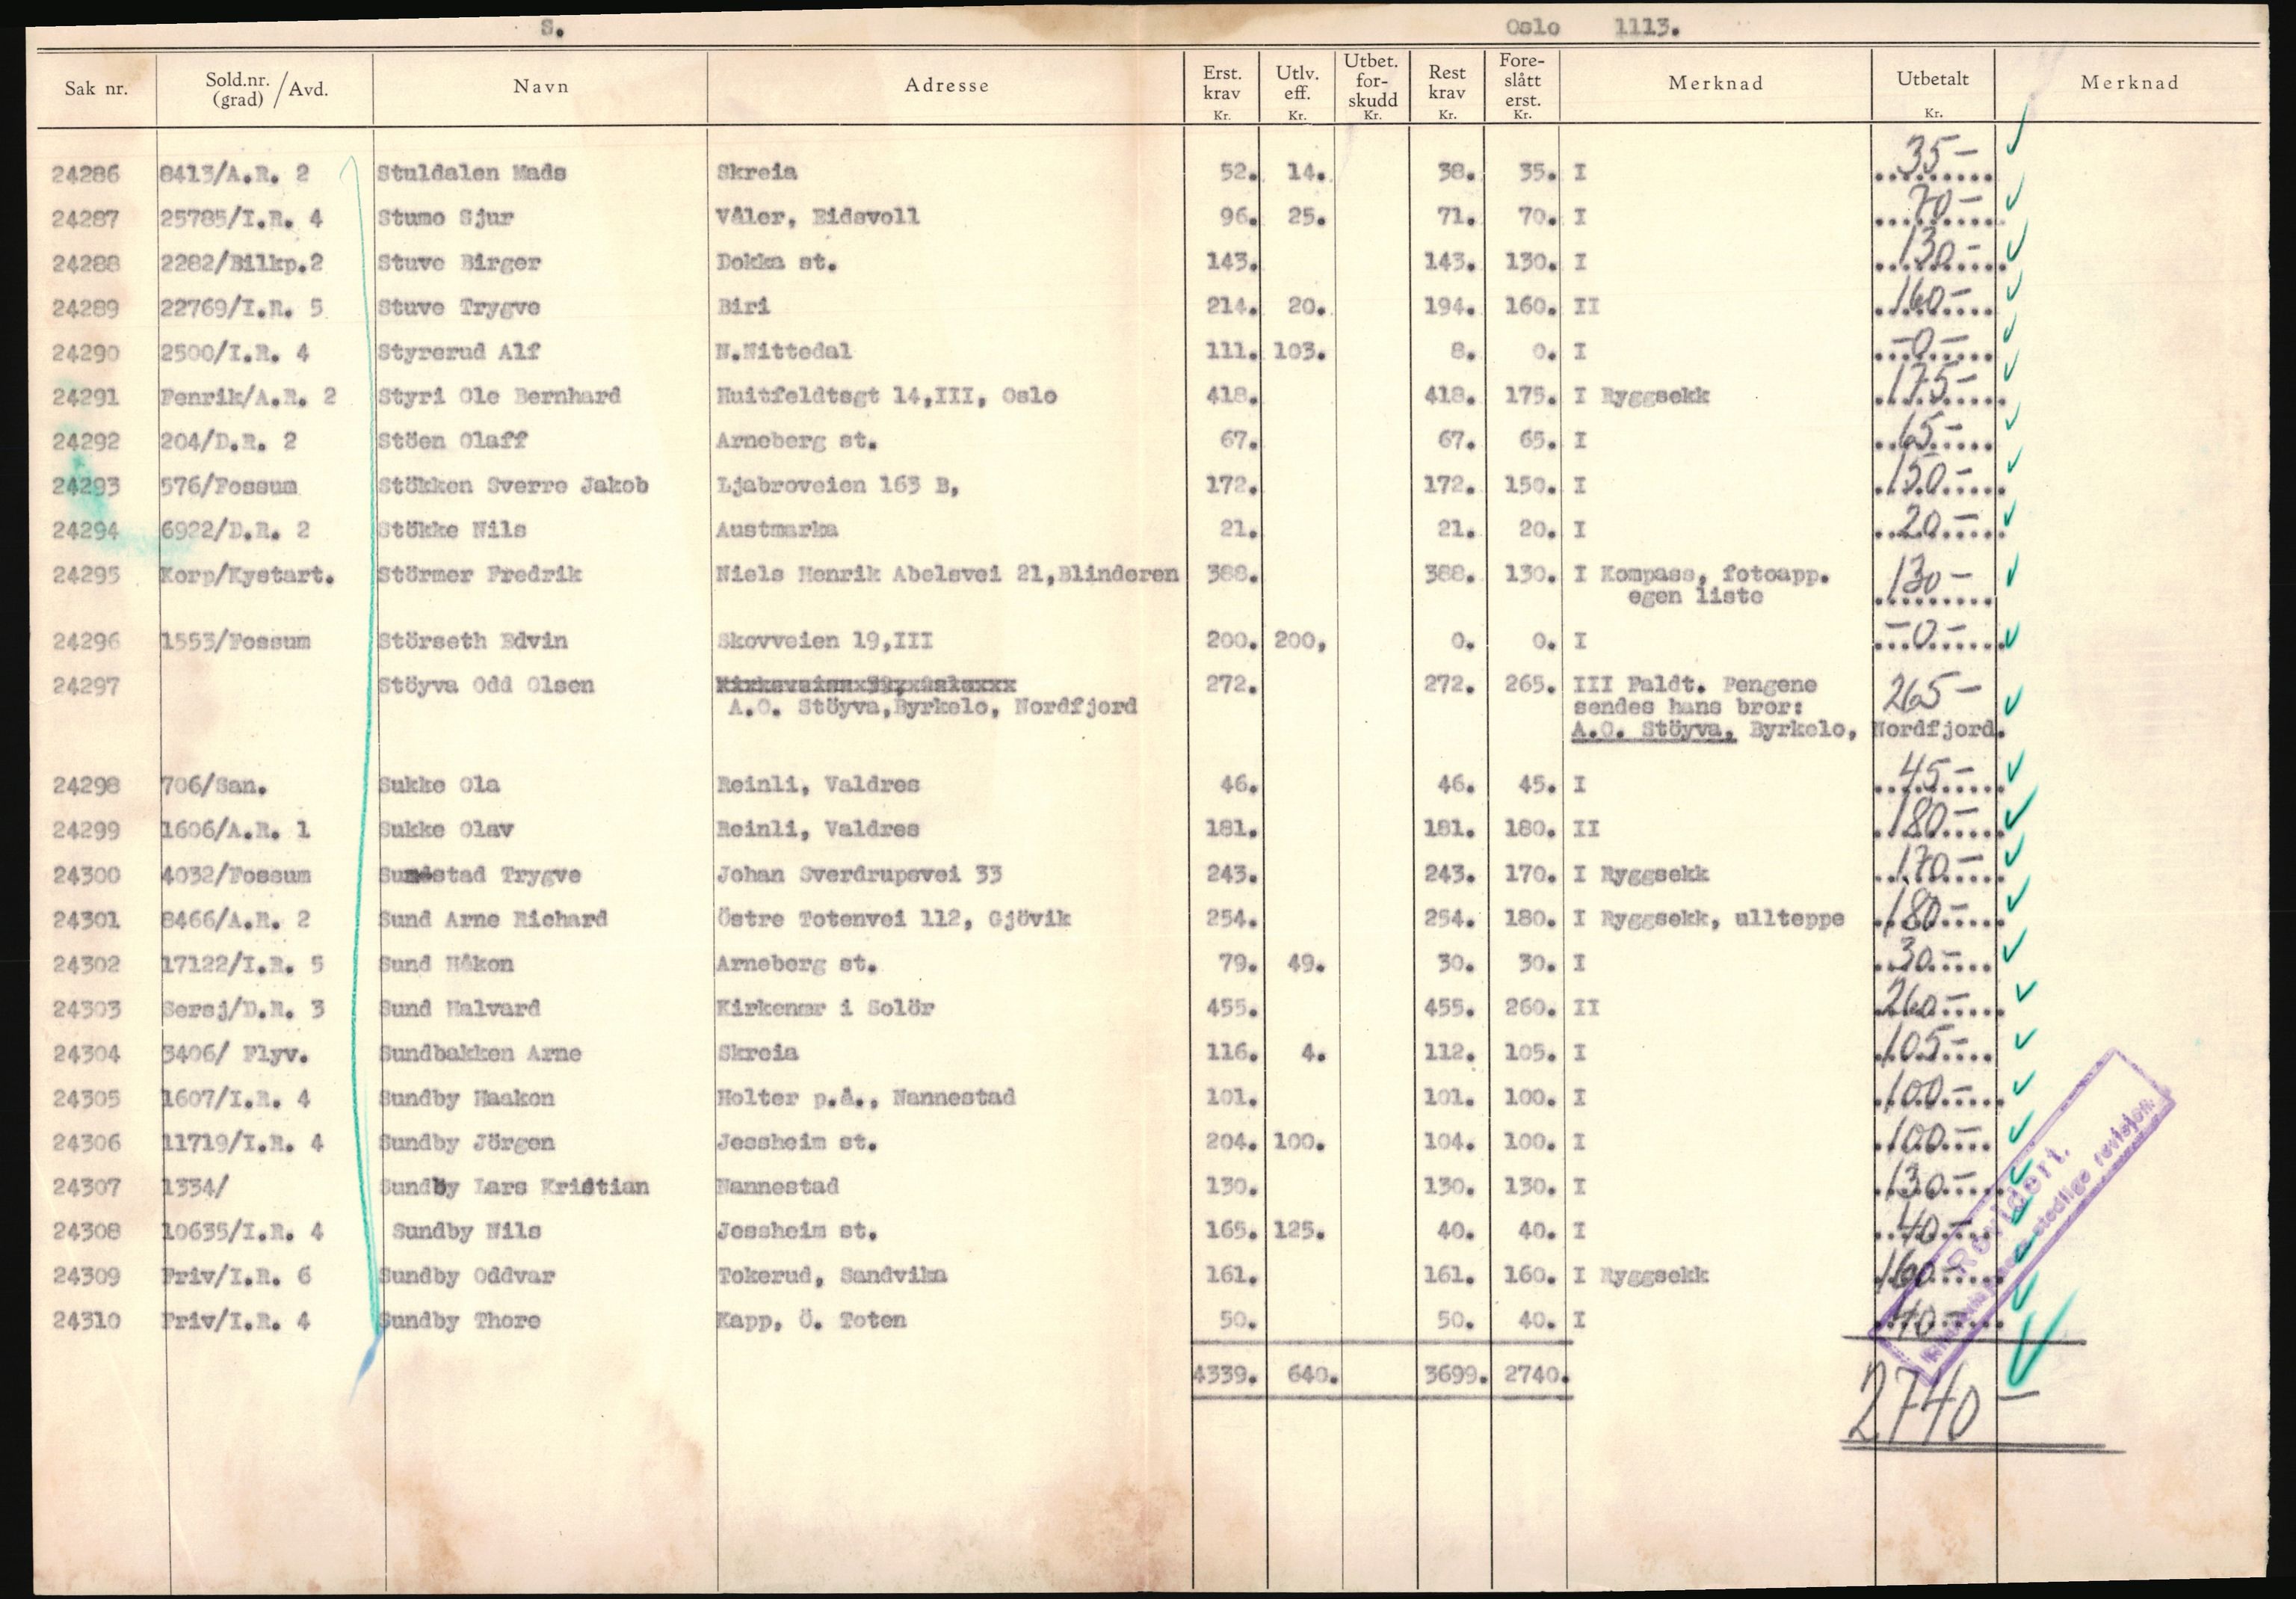 S. Oslo 1113.
Sak nr. Sold.nr. (grad) / Avd. Navn Adresse Erst. krav Kr. Utlv. eff. Kr. Utbet. for- skudd Kr. Rest krav Kr. Fore- slått erst. Kr. Merknad Utbetalt Kr. Merknad
24286 8413/A.R. 2 Stuldalen Mads Skreia 52. 14. 38. 35. I 35-
24287 25785/I.R. 4 Stumo Sjur Våler, Eidsvoll 96. 25. 71. 70. I 70-
24288 2282/Bilkp.2 Stuve Birger Dokka st. 143. 143. 130. I 130-
24289 22769/I.R. 5 Stuve Trygve Biri 214. 20. 194. 160. II 160-
24290 2500/I.R. 4 Styrerud Alf N.Nittedal 111. 103. 8. 0. I -0-
24291 Fenrik/A.R. 2 Styri Ole Bernhard Huitfeldtsgt 14,III, Oslo 418. 418. 175. I Ryggsekk 175-
24292 204/D.R. 2 Stöen Olaff Arneberg st. 67. 67. 65. I 65-
24293 576/Fossum Stökken Sverre Jakob Ljabroveien 163 B, 172. 172. 150. I 150-
24294 6922/D.R. 2 Stökke Nils Austmarka 21. 21. 20. I 20-
24295 Korp/Kystart. Störmer Fredrik Niels Henrik Abelsvei 21,Blinderen 388. 388. 130. I Kompass, fotoapp. 130-
egen liste
24296 1553/Fossum Störseth Edvin Skovveien 19,III 200. 200, 0. 0. I -0-
24297 Stöyva Odd Olsen 272. 272. 265. III Faldt. Pengene 265-
A.O. Stöyva,Byrkelo, Nordfjord sendes hans bror:
A.O. Stöyva, Byrkelo, Nordfjord.
24298 706/San. Sukke Ola Reinli, Valdres 46. 46. 45. I 45-
24299 1606/A.R. 1 Sukke Olav Reinli, Valdres 181. 181. 180. II 180-
24300 4032/Fossum Trygve Johan Sverdrupsvei 33 243. 243. 170. I Ryggsekk 170-
24301 8466/A.R. 2 Sund Arne Richard Östre Totenvei 112, Gjövik 254. 254. 180. I Ryggsekk, ullteppe 180-
24302 17122/I.R. 5 Sund Håkon Arneberg st. 79. 49. 30. 30. I 30-
24303 Sersj/D.R. 3 Sund Halvard Kirkenær i Solör 455. 455. 260. II 260-
24304 3406/ Flyv. Sundbakken Arne Skreia 116. 4. 112. 105. I 105-
24305 1607/I.R. 4 Sundby Haakon Holter p.å., Nannestad 101. 101. 100. I 100-
24306 11719/I.R. 4 Sundby Jörgen Jessheim st. 204. 100. 104. 100. I 100-
24307 1334/ Sundby Lars Kristian Nannestad 130. 130. 130. I 130-
24308 10635/I.R. 4 Sundby Nils Jessheim st. 165. 125. 40. 40. I 40-
24309 Priv/I.R. 6 Sundby Oddvar Tokerud, Sandvika 161. 161. 160. I Ryggsekk 160-
24310 Priv/I.R. 4 Sundby Thore Kapp, Ö. Toten 50. 50. 40. I 40-
4339. 640. 3699. 2740.
2740-
Revidert.
stedlige revisjon.